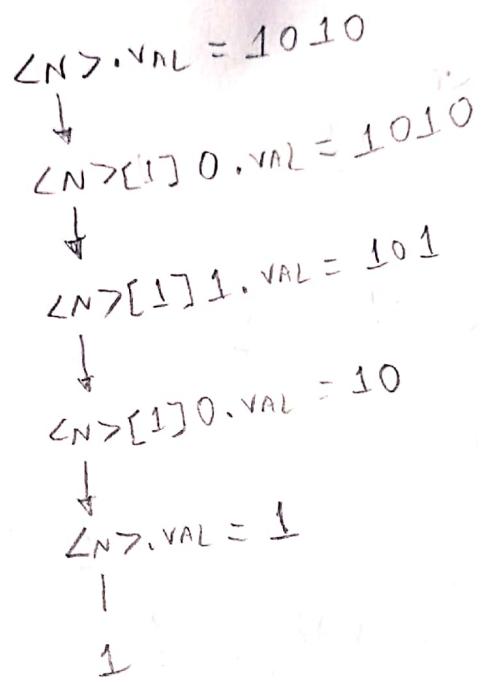 <N>.VAL = 1010
↓
<N>[1]0.VAL = 1010
↓
<N>[1]1.VAL = 101
↓
<N>[1]0.VAL = 10
↓
<N>.VAL = 1
|
1